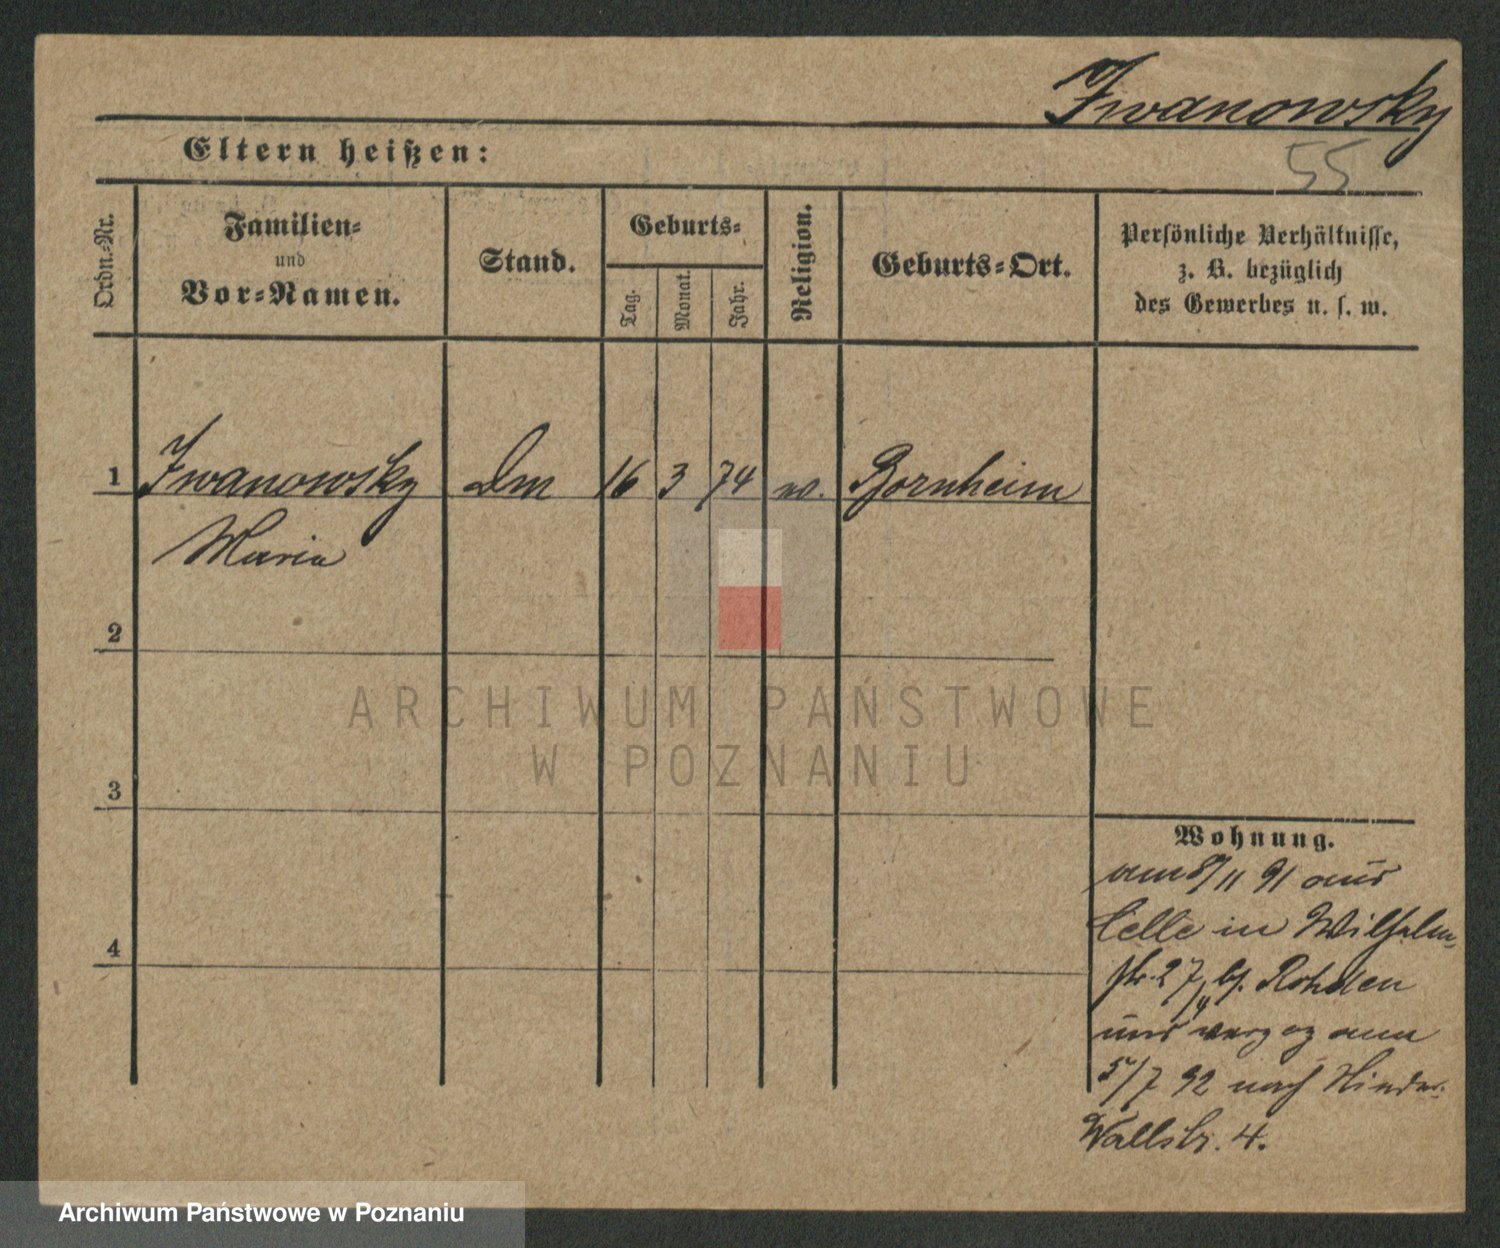 Iwanowsky
55
Eltern heißen:
Ordn.-Nr.
Familien-
und
Vor-Namen.
Stand.
Geburts-
Tag.
Monat.
Jahr.
Religion.
Geburts-Ort.
Persönliche Verhältnisse,
z. B. bezüglich
des Gewerbes u. s. w.
1 Iwanowsky Dm 16 3 74 w. Bornheim
Maria
2
ARCHIWUM PAŃSTWOWE
W POZNANIU
3
4
Wohnung.
am 8/11 91 aus
Celle in Wilhelm
str. 27 bf. Rohden
und verzog am
5/7 92 nach
Wallstr. 4.
Archiwum Państwowe w Poznaniu